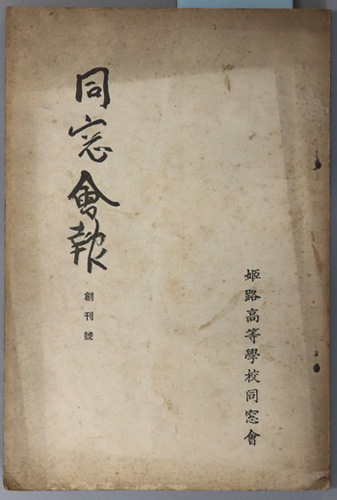 同窓會報
創刊號
姫路高等學校同窓會